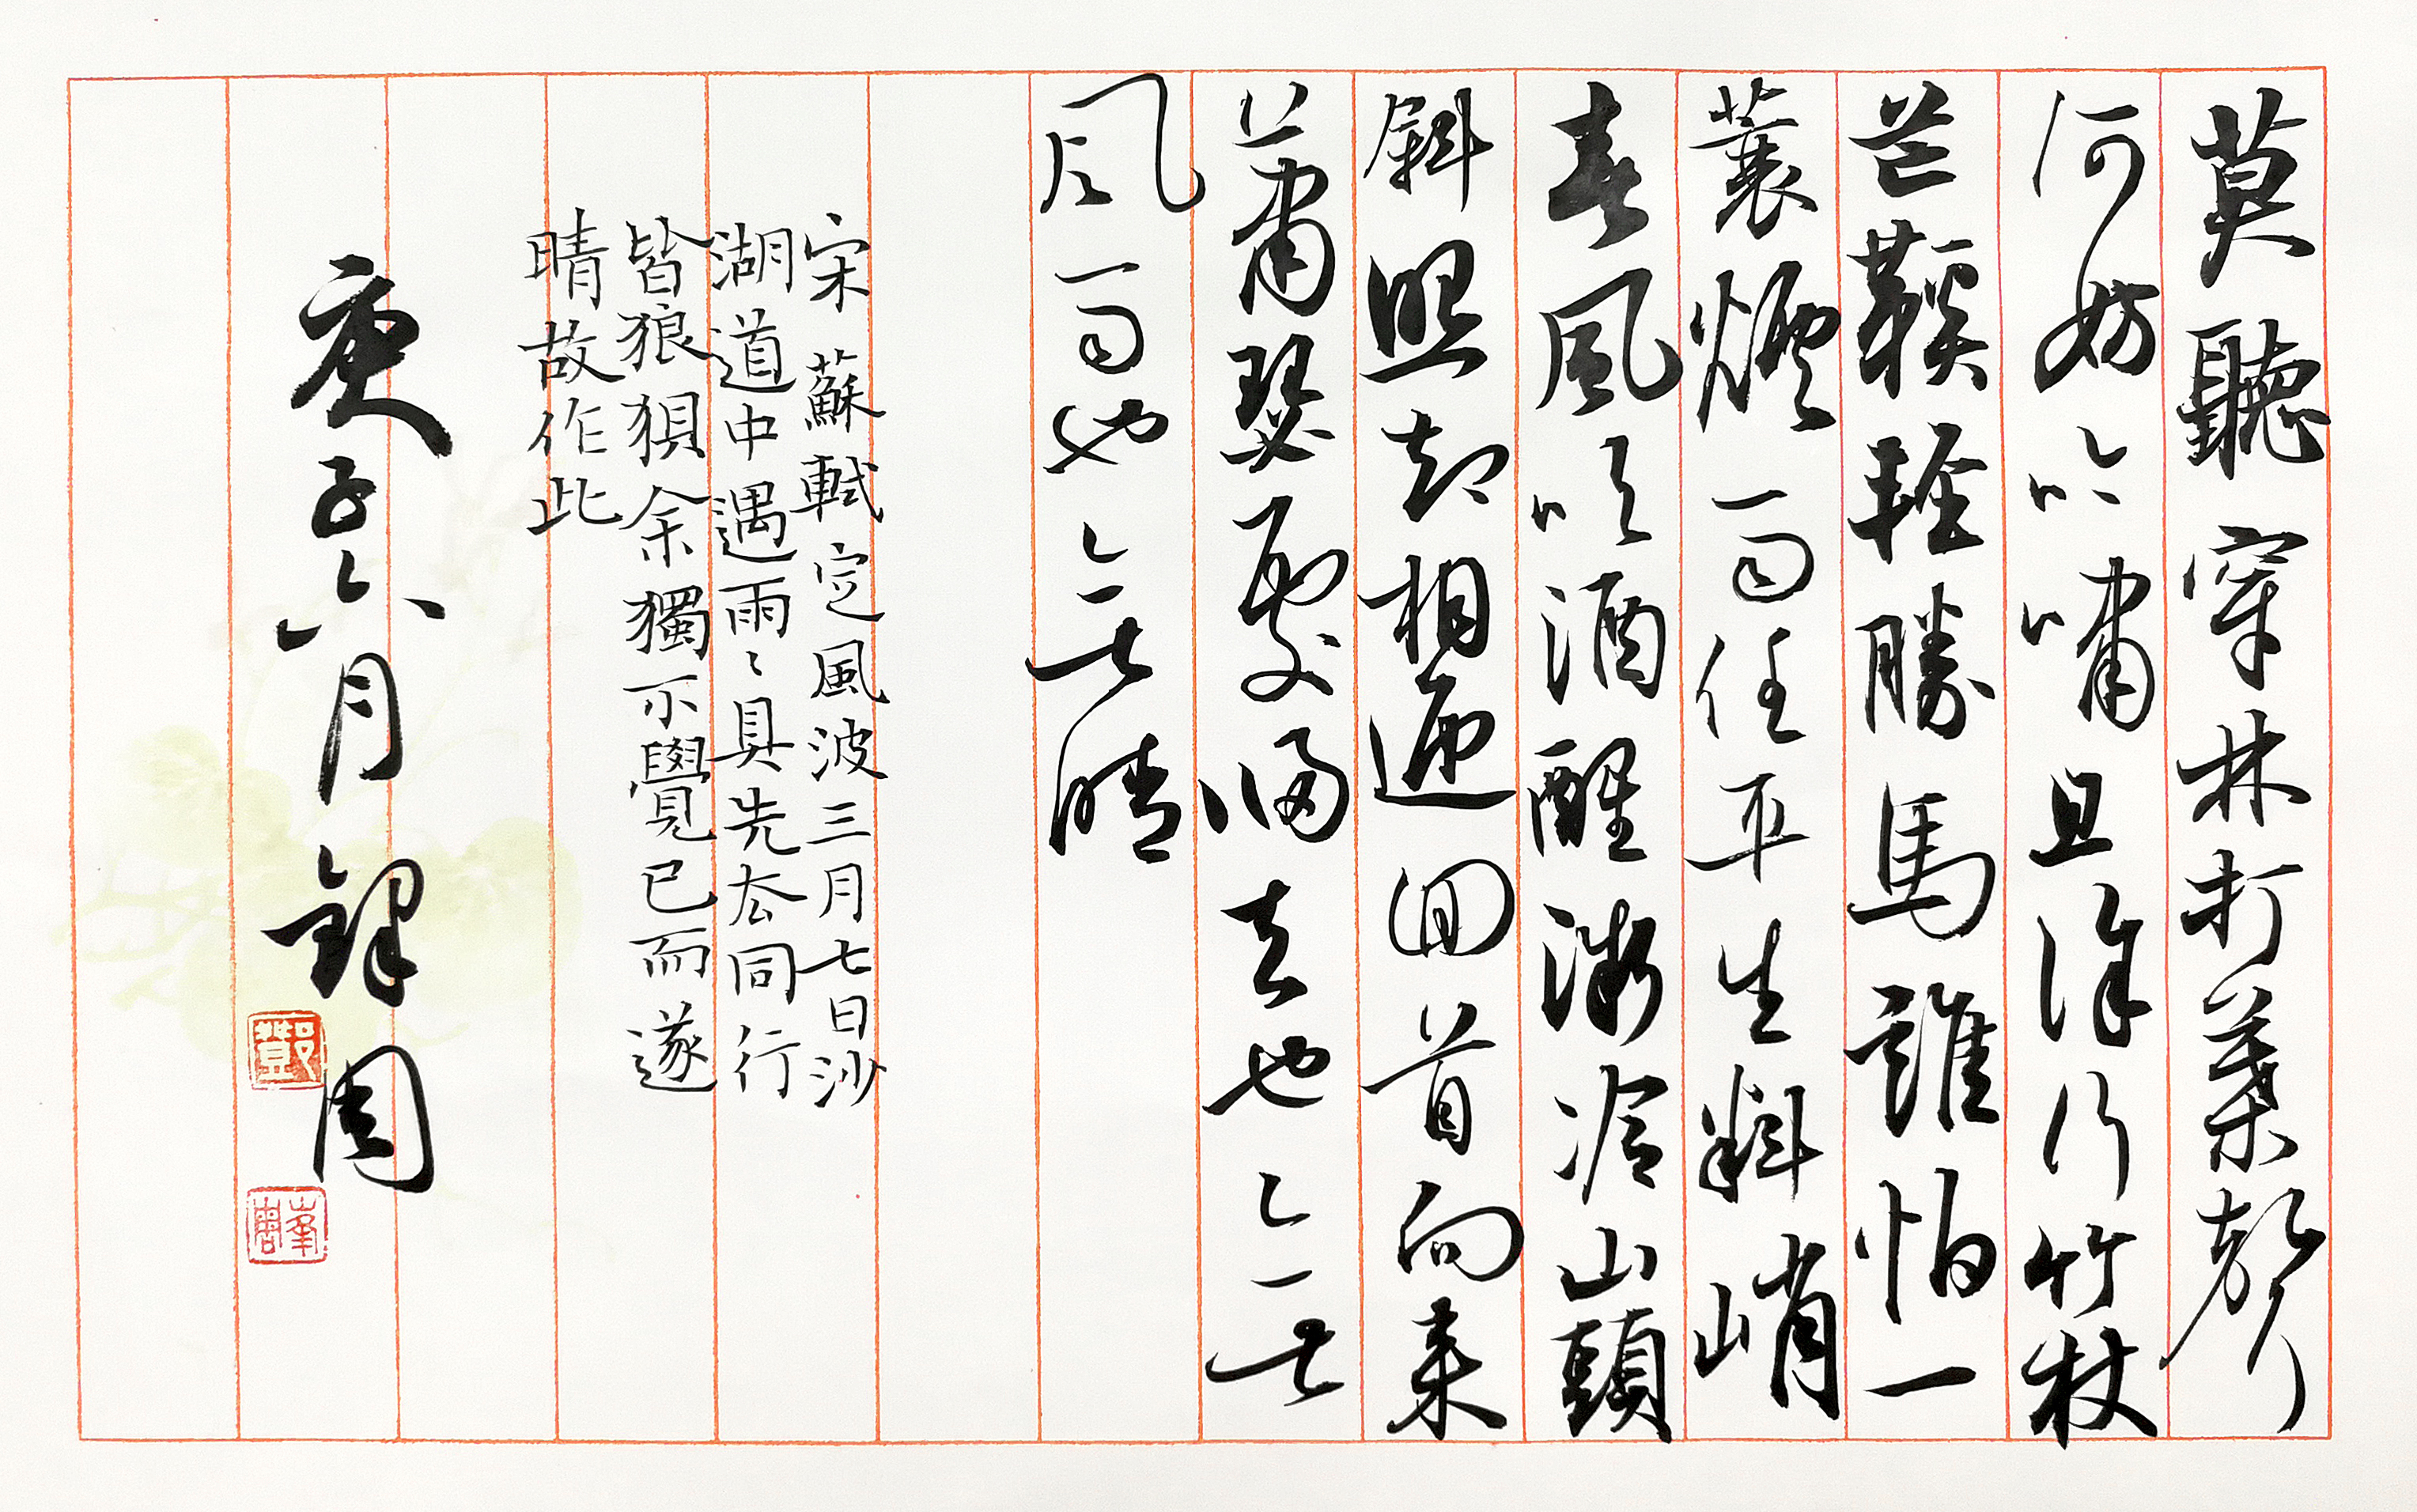 莫聽穿林打葉聲
何妨吟嘯且徐行竹杖
芒鞵輕勝馬誰怕一
蓑煙雨任平生料峭
春風吹酒醒微冷山頭
斜照却相迎回首向來
蕭瑟處歸去也無
風雨也無晴
宋蘇軾定風波三月七日沙
湖道中遇雨〻具先去同行
皆狼狽余獨不覺已而遂
晴故作此
庚子六月鐸周
鄧